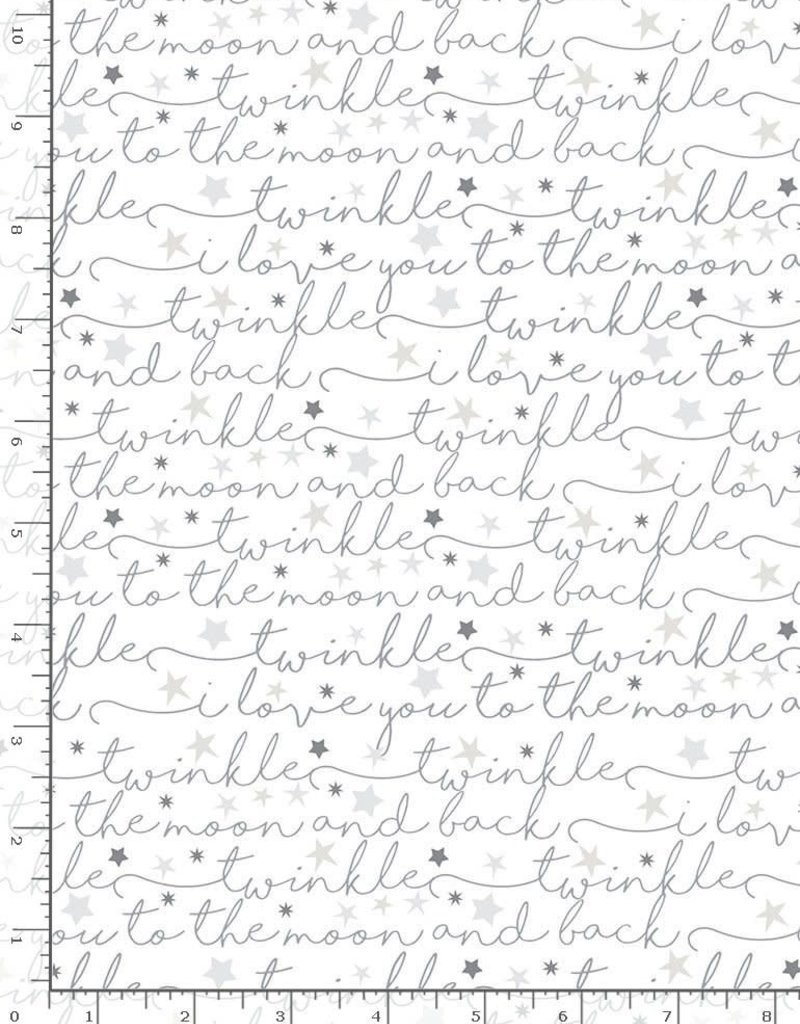 10 to the moon and back i lov
kle twinkle twinkle
9
you to the moon and back
kle twinkle twinkle
8
ck i love you to the moon a
twinkle twinkle
7
and back i love you to t
twinkle twinkle tw
6
to the moon and back i lov
kle twinkle twinkle
5
you to the moon and back
kle twinkle twinkle
4
ck i love you to the moon a
3
twinkle twinkle tw
to the moon and back i lov
2
kle twinkle twinkle
1 you to the moon and back
0 1 2 3 4 5 6 7 8